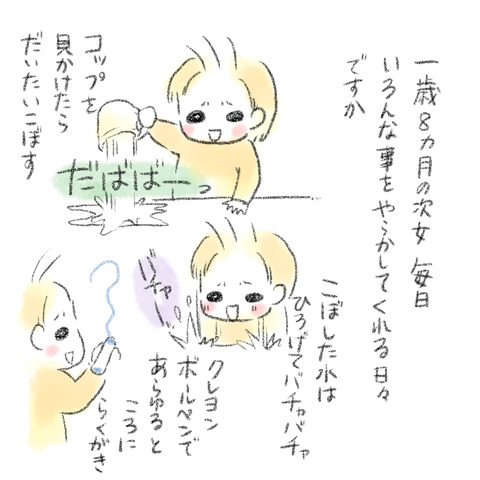 一歳8ヵ月の次女 毎日
いろんな事をやらかしてくれる日々
ですが
コップを
見かけたら
だいたいこぼす
だばばーっ
こぼした水は
ひろげてバチャバチャ
バチャー
クレヨン
ボールペンで
あらゆると
ころに
らくがき